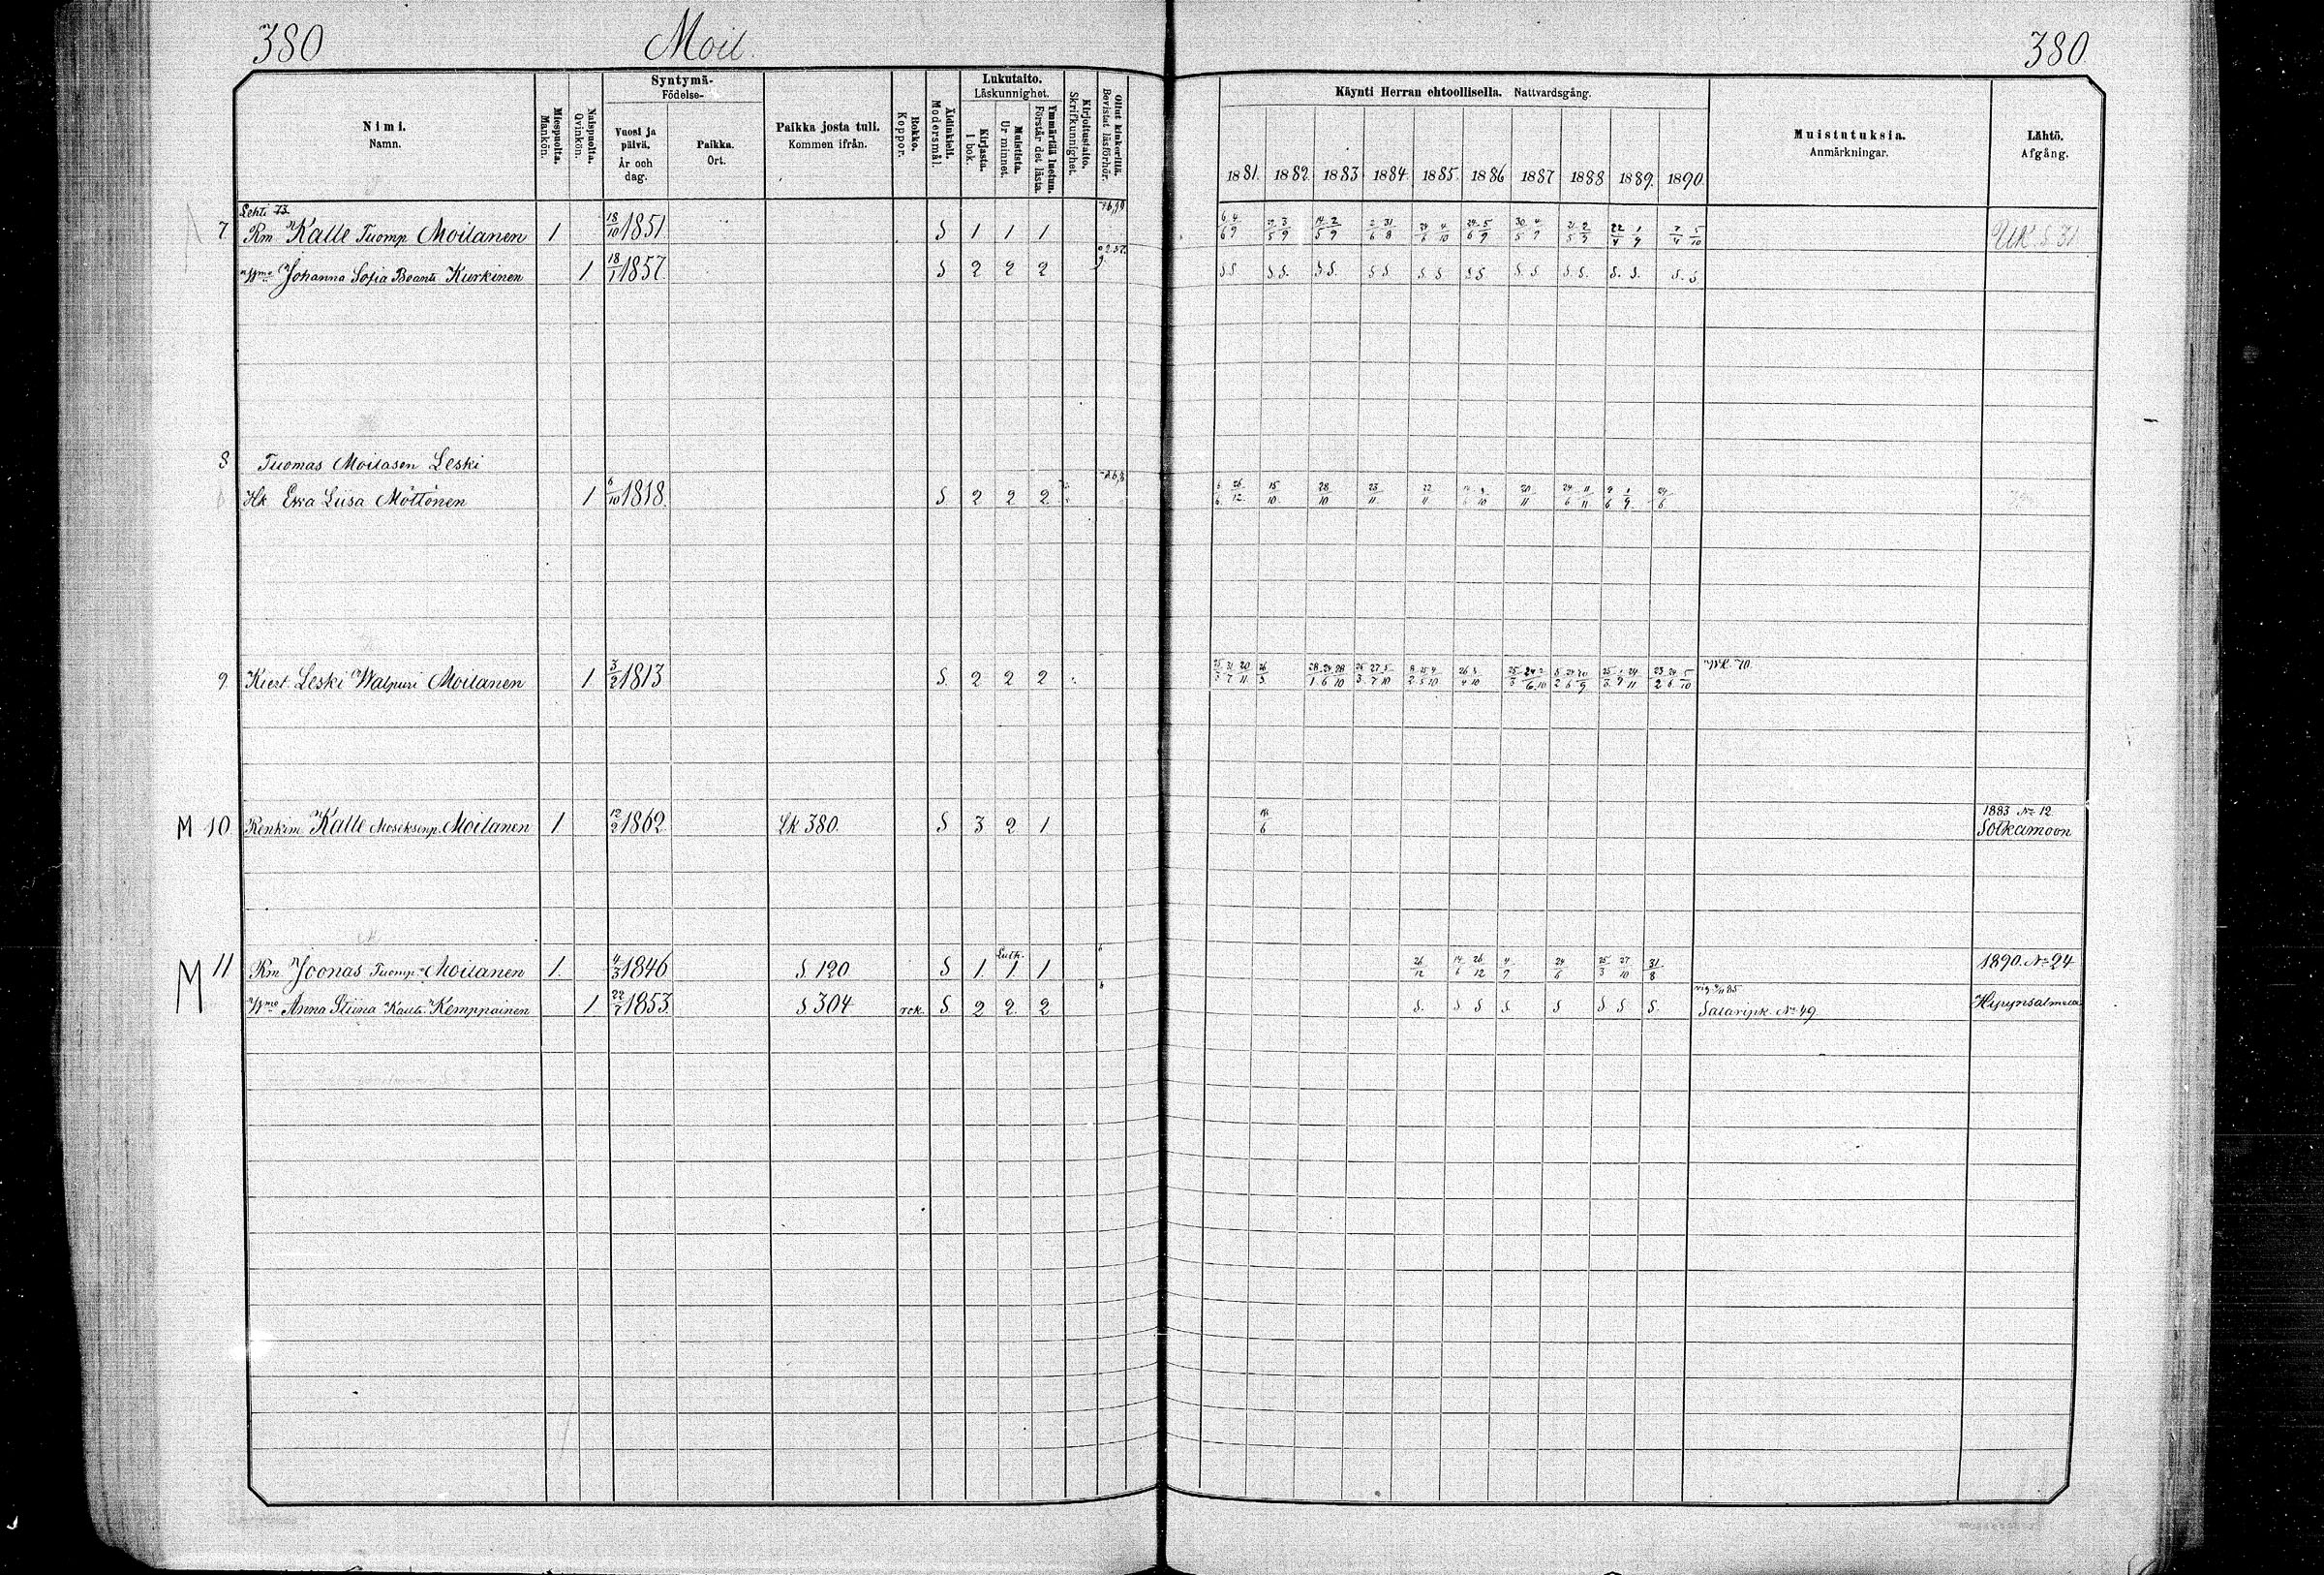 380 Moil. 380
Nimi. Namn.
Miespuolta. Mankön.
Naispuolta. Qvinkön.
Syntymä- Födelse-
Vuosi ja päivä. År och dag.
Paikka. Ort.
Paikka josta tuli. Kommen ifrån.
Rokko. Koppor.
Äidinkieli. Modersmål.
Lukutaito. Läskunnighet.
Kirjasta. I bok.
Muistista. Ur minnet.
Ymmärtää luetun. Förstår det lästa.
Kirjoitustaito. Skrifkunnighet.
Ollut kinkerillä. Bevistat läsförhör.
Käynti Herran ehtoollisella. Nattvardsgång.
1881. 1882. 1883 1884. 1885. 1886 1887 1888 1889. 1890.
Muistutuksia. Anmärkningar.
Lähtö. Afgång.
Lehti 73
7 Rm Kalle Tuomp Moilanen 1 18/10 1851 S 1 1 1 6/6 4/9 3/9 14/5 2/9 2/6 31/8 24/6 4/10 24/6 5/9 30/5 4/9 22/4 1/9 5/10 UK. S 31
Wmo Johanna Sofia Beanti Kurkinen 1 18/1 1857. S 2 2 2 S S S. S. S. S. S S S S S S S. S. S. S. S. S. S. S
8 Tuomas Moilasen Leski
Hk Ewa Liisa Möttönen 1 6/10 1818. S 2 2 2 6/6. 26/12. 15/10. 28/10 23/11. 22/11 20/11 24/6 11/11 9/6 1/9 24/6
9 Kiert. Leski Walpuri Moilanen 1 3/2 1813 S. 2 2 2 25/3 31/7 20/11 26/3. 28/1 24/6 28/10 26/3 27/7 5/10 26/4 3/10 25/3 24/6 2/10 25/3 1/9 24/11 23/2 24/6 5/10 WK. 70.
M 10 Renkim Kalle Moseksenp. Moilanen 1 12/2 1862 LK 380. S 3 2 1 18/6 1883 No 12
Sotkamoon
M 11 Rm Joonas Tuomp. Moilanen 1. 4/3 1846 S 120 S 1. Luth. 1. 1 26/12 14/6 26/12 4/9 24/6 25/3 27/10 31/8 1890. No 24
Wmo Anna Stiina Kallit. Kemppainen 1 22/7 1853. S 304 rok. S. 2 2. 2 S. S S S. S S S S. vig. 85
Satavipk. No 49. Hyrynsalmella